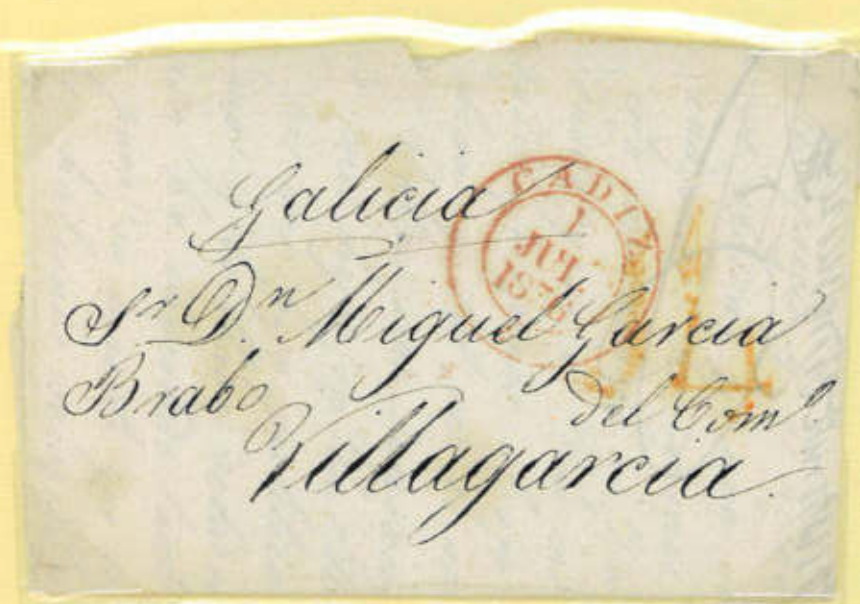 Galicia
CADIZ
1
Sr. Dn. Miguel Garcia
Brabo del Como.
Villagarcia.